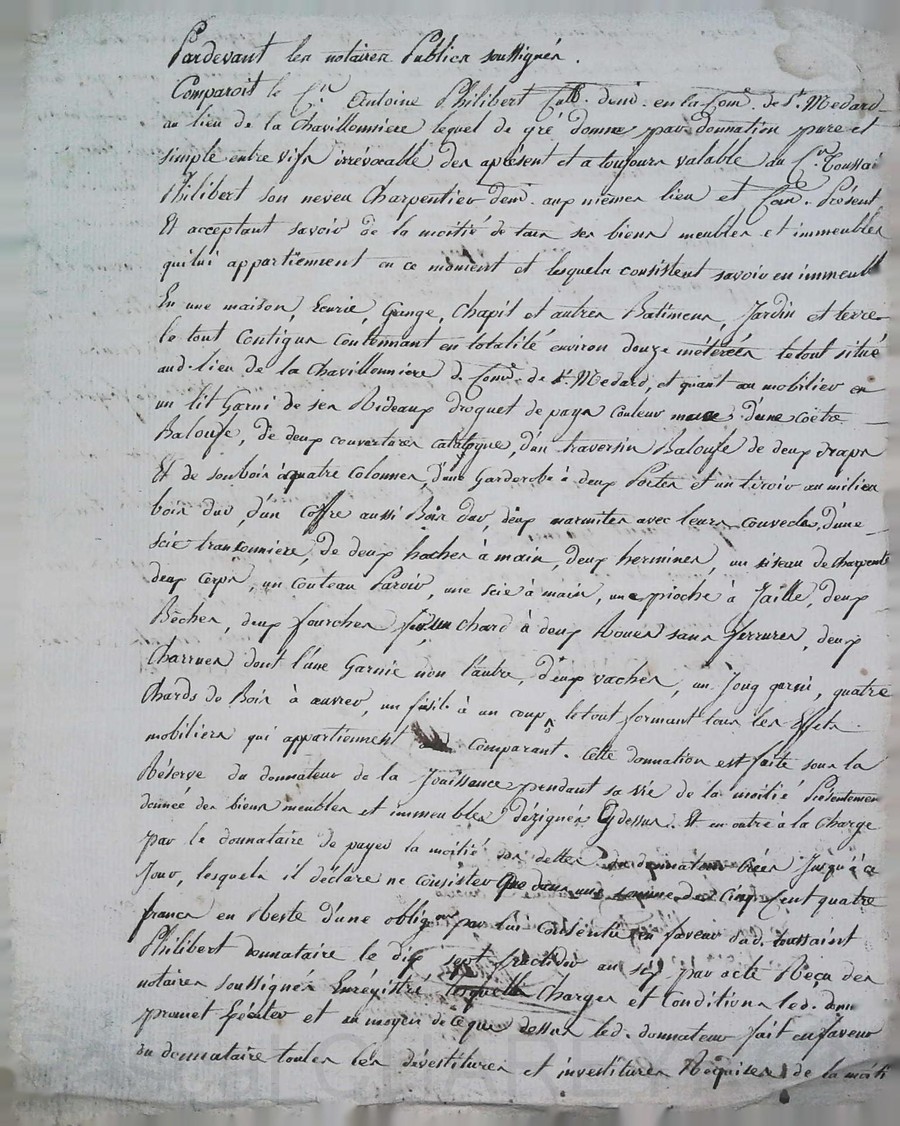 Pardevant les notaires Publics soussignés.
Comparoit le C.en Antoine Philibert Cult. dem. en la Com.e de St. Medard
au lieu de la Chavillonniere lequel de gré donne par donnation pure et
simple entre vifs irrévocable des aprésent et a toujours valable au C.en Toussai
Philibert son neveu Charpentier dem. aux mêmes lieu et Com.e Présent
Et acceptant savoir de la moitié de tous ses biens meubles et immeubles
qui lui appartiennent en ce moment et lesquels consistent savoir en immeubl
En une maison, Ecurie, Grange, Chapit et autres Batimens, Jardin et terre
le tout Contigus Contennant en totalité environ douze méterées le tout situé
aud. lieu de la Chavillonniere d. Com.e de St. Medard, et quant au mobilier en
un lit Garni de ses Rideaux droguet de pays couleur d'une coëtre
Baloufe, de deux couvertures catalogne, d'un traversin Baloufe de deux draps
Et de son bois à quatre Colonnes, d'une Garderobe à deux Portes et un tiroir au milieu
bois dur, d'un Coffre aussi Bois dur, deux marmites avec leurs Couvecles, d'une
scie transonniere, de deux haches à main, deux hermines, un siseau de charpente
deux Cerps, un Couteau Paroir, une scie à main, une pioche à Jaille, deux
Bêches, deux fourches, un chard à deux Roues sans ferrures, deux
Charrues dont l'une Garnie non l'autre, deux vaches, un Joug garni, quatre
Chards de Bois à œuvrer, un fusil à un coup, le tout formant tous les Effets
mobiliers qui appartiennent Comparant. Cette donnation est faite sous la
Réserve du donnateur de la Jouissance pendant sa vie de la moitié Présentemen
donnée des biens meubles et immeubles dézignés Cydessus. Et en outre à la Charge
par le donnataire de payer la moitié des dettes du donnateur Crées Jusqu'à ce
Jour, lesquels il déclare ne Consister Que dans une somme de Cinq Cent quatre
francs en Reste d'une oblig.on par lui Consentie en faveur dud. toussaint
Philibert donnataire le dix sept fructidor an six par acte Reçu des
notaires soussignés Enrégistré Charges et Conditions led. donn
promet et au moyen de ce que dessus led. donnateur fait en faveur
du donnataire toutes les dévestitures et investitures Réquises de la moiti